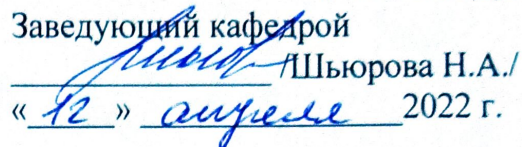 Заведующий кафедрой
/Шьюрова Н.А./
«12» апреля 2022 г.